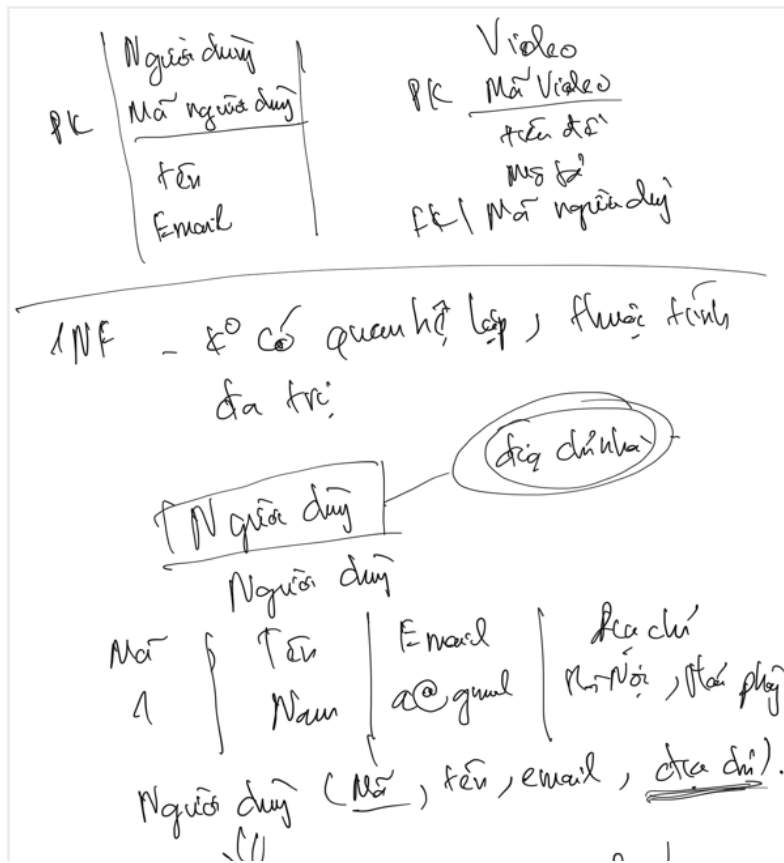 Người dùng
PK Mã người dùng
tên
Email
Video
PK Mã Video
tiêu đề
mô tả
FK Mã người dùng
1NF - ko có quan hệ lặp, thuộc tính
đa trị
địa chỉ nhà
Người dùng
Người dùng
Mã | Tên | Email | Địa chỉ
1 | Nam | a@gmail | Hà Nội, Hải phòng
Người dùng (Mã, tên, email, địa chỉ).